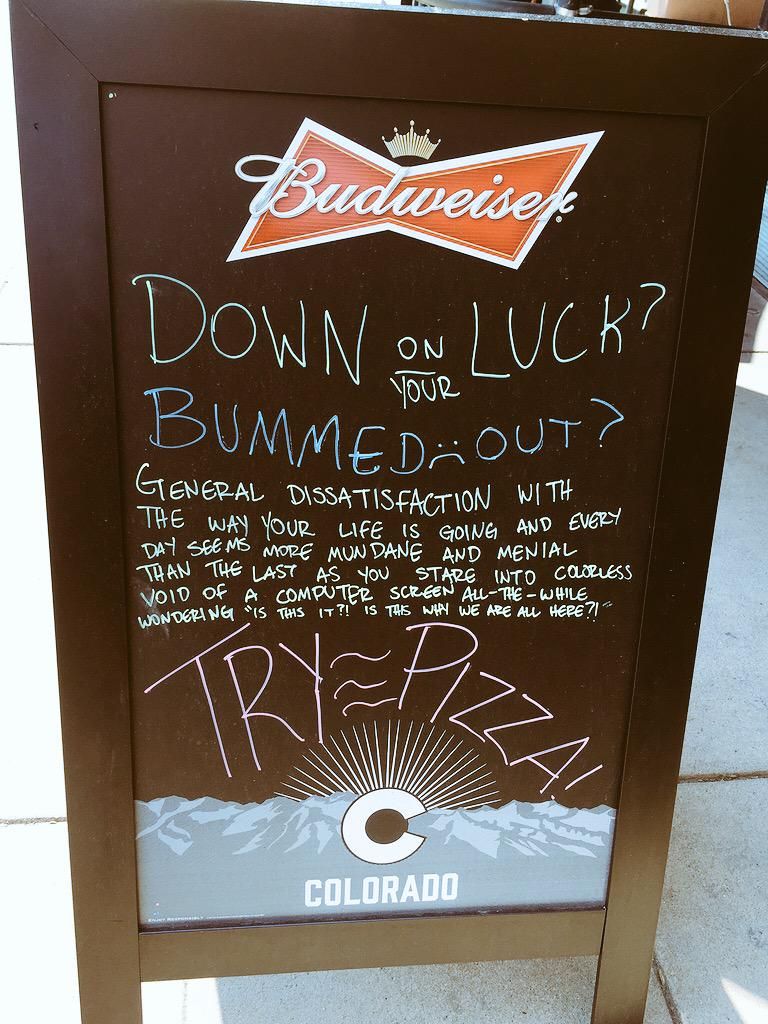 Budweiser
DOWN ON YOUR LUCK?
BUMMED :( OUT?
GENERAL DISSATISFACTION WITH
THE WAY YOUR LIFE IS GOING AND EVERY
DAY SEEMS MORE MUNDANE AND MENIAL
THAN THE LAST AS YOU STARE INTO COLORLESS
VOID OF A COMPUTER SCREEN ALL-THE-WHILE
WONDERING "IS THIS IT?! IS THIS WHY WE ARE ALL HERE?!"
TRY PIZZA!
C
COLORADO
ENJOY RESPONSIBLY